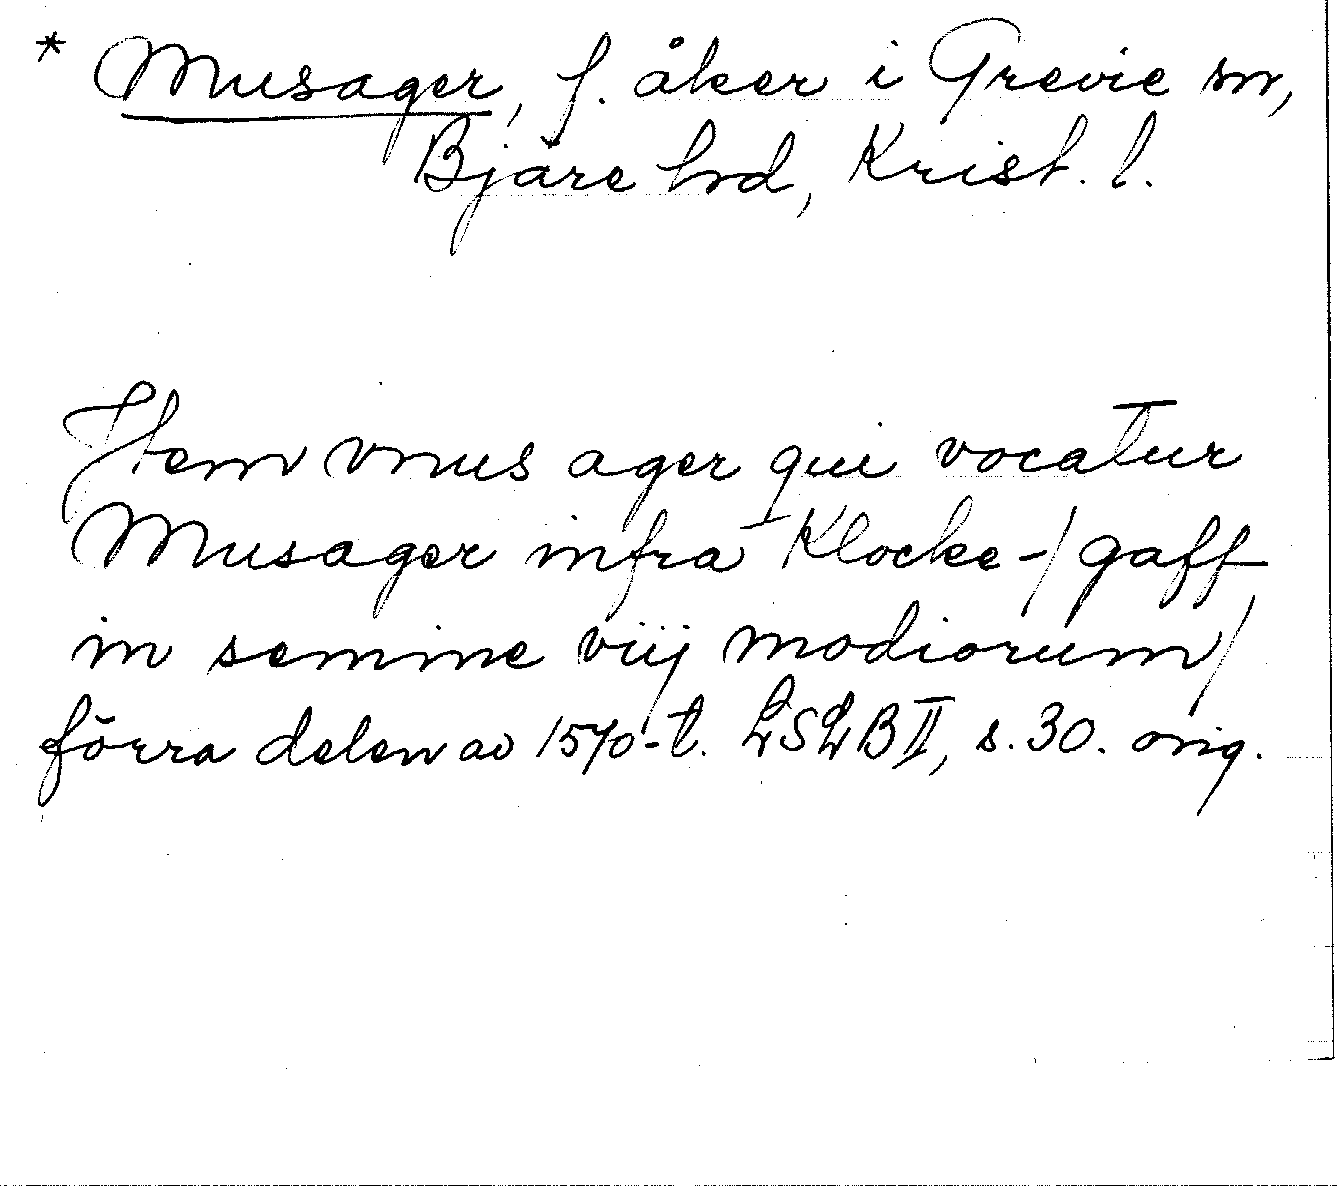 * Musager, f. åker i Grevie sn,
Bjäre hrd, Krist. l.
Item vnus ager qui vocatur
Musager infra Klocke-/gaff
in semine viij modiorum/
förra delen av 1570-t. LSLB II, s. 30. orig.